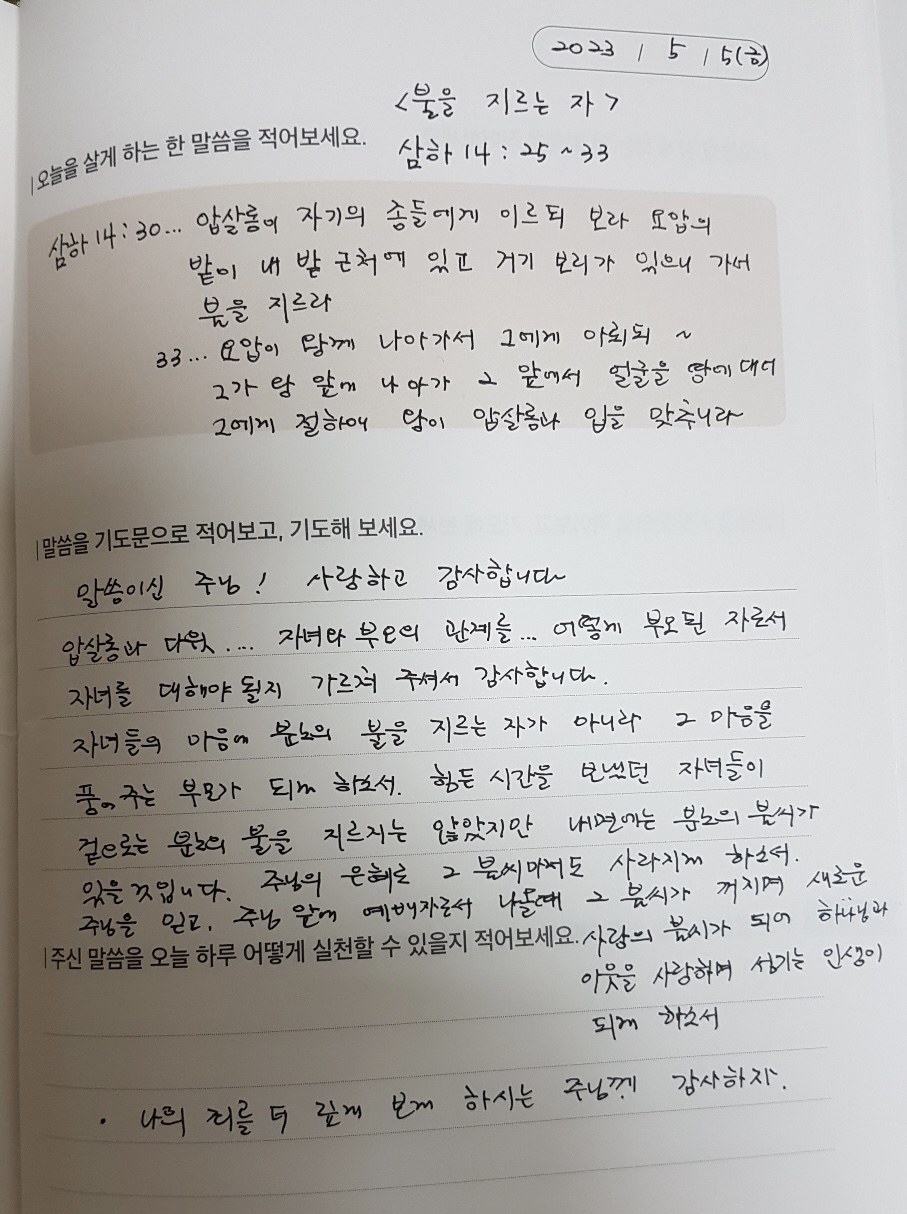 2023 / 5 / 5(금)
<불을 지르는 자>
|오늘을 살게 하는 한 말씀을 적어보세요.
삼하 14 : 25 ~ 33
삼하 14 : 30 ... 압살롬이 자기의 종들에게 이르되 보라 요압의
밭이 내 밭 근처에 있고 거기 보리가 있으니 가서
불을 지르라
33 ... 요압이 왕께 나아가서 그에게 아뢰되 ~
그가 왕 앞에 나아가 그 앞에서 얼굴을 땅에 대어
그에게 절하매 왕이 압살롬과 입을 맞추니라
|말씀을 기도문으로 적어보고, 기도해 보세요.
말씀이신 주님! 사랑하고 감사합니다
압살롬과 다윗 .... 자녀와 부모의 관계를 ... 어떻게 부모된 자로서
자녀를 대해야 될지 가르쳐 주셔서 감사합니다.
자녀들의 마음에 분노의 불을 지르는 자가 아니라 그 마음을
풀어주는 부모가 되게 하소서. 힘든 시간을 보냈던 자녀들이
겉으로는 분노의 불을 지르지는 않았지만 내면에는 분노의 불씨가
있을 것입니다. 주님의 은혜로 그 불씨마저도 사라지게 하소서.
주님을 믿고, 주님 앞에 예배자로서 나올때 그 불씨가 꺼지며 새로운
사랑의 불씨가 되어 하나님과
이웃을 사랑하며 섬기는 인생이
되게 하소서
|주신 말씀을 오늘 하루 어떻게 실천할 수 있을지 적어보세요.
· 나의 죄를 더 깊게 보게 하시는 주님께 감사하자.